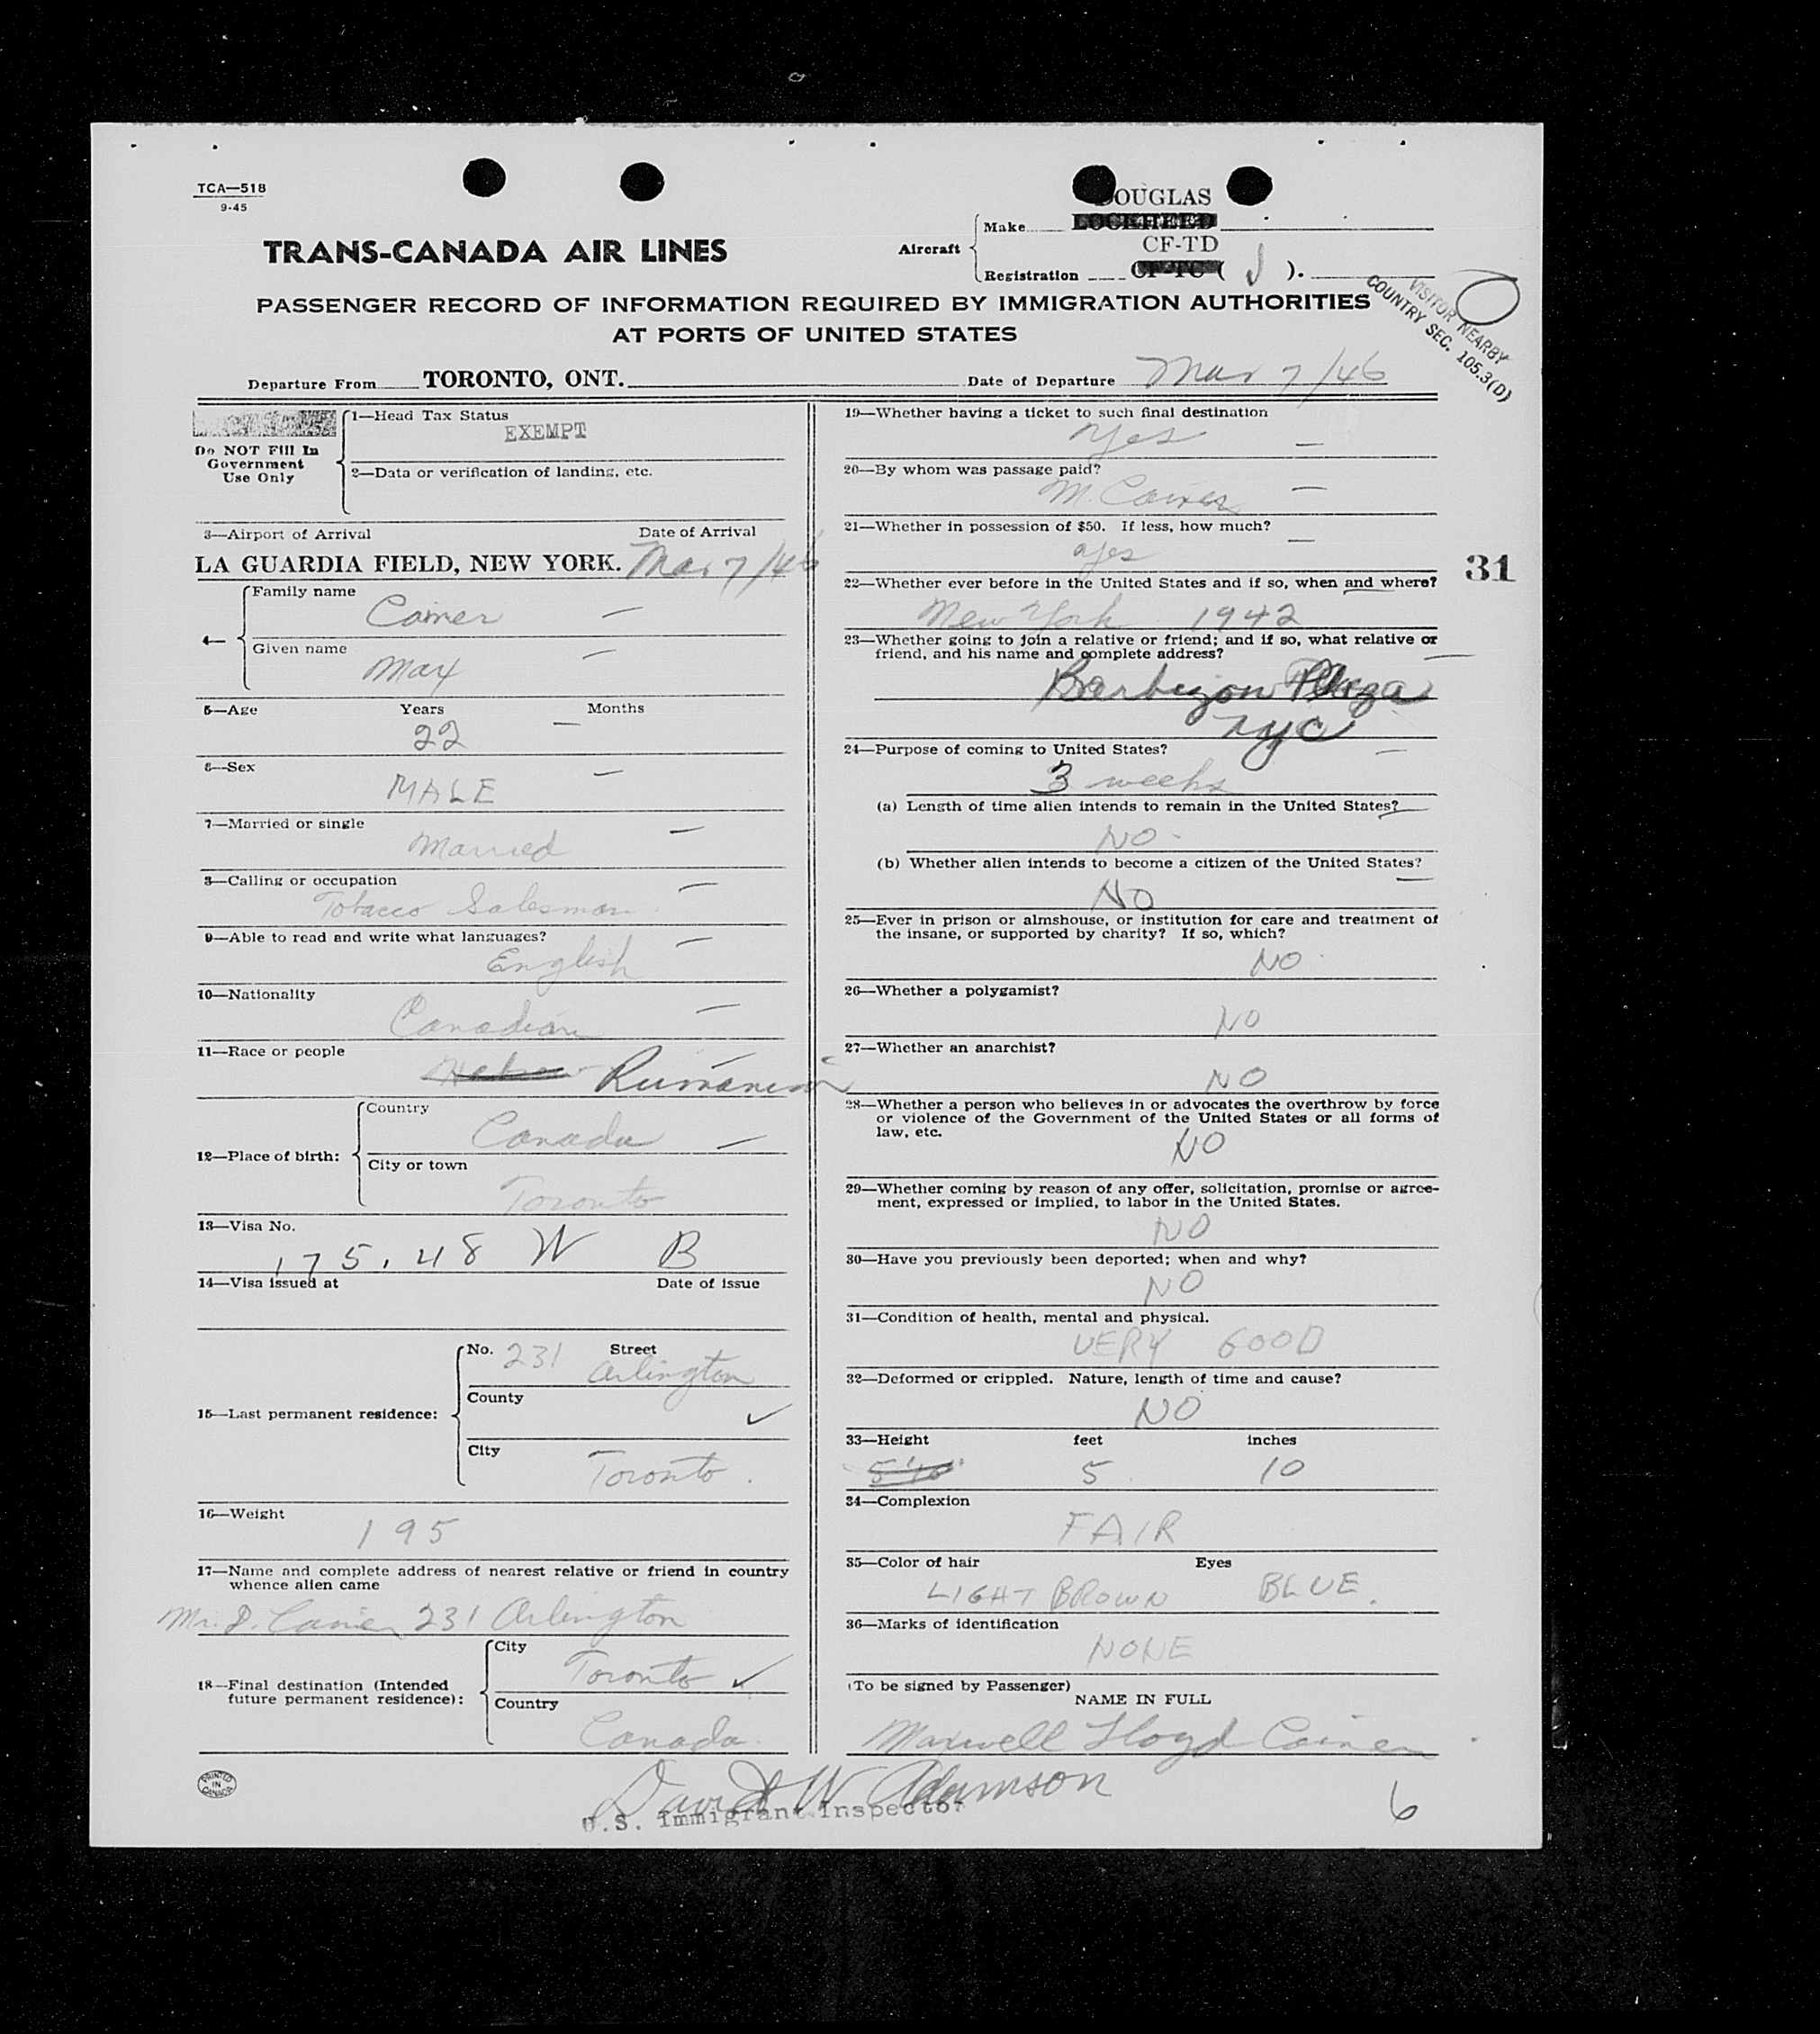 TCA—518
9-45
OUGLAS
Make LOCKHEED
TRANS-CANADA AIR LINES
Aircraft
CF-TD
Registration CF-TC ( J ).
VISITOR NEARBY
COUNTRY SEC. 105.3(D)
PASSENGER RECORD OF INFORMATION REQUIRED BY IMMIGRATION AUTHORITIES
AT PORTS OF UNITED STATES
Departure From TORONTO, ONT. Date of Departure Mar 7/46
Do NOT Fill In
Government
Use Only
1—Head Tax Status
EXEMPT
2—Data or verification of landing, etc.
3—Airport of Arrival Date of Arrival
LA GUARDIA FIELD, NEW YORK. Mar 7/46
4—
Family name
Cainer
Given name
Max
5—Age Years Months
22
6—Sex
MALE
7—Married or single
Married
8—Calling or occupation
Tobacco Salesman
9—Able to read and write what languages?
English
10—Nationality
Canadian
11—Race or people
Rumanian
12—Place of birth:
Country
Canada
City or town
Toronto
13—Visa No.
175.48 W B
14—Visa issued at Date of issue
15—Last permanent residence:
No. 231 Street
Arlington
County
City
Toronto.
16—Weight
195
17—Name and complete address of nearest relative or friend in country
whence alien came
231 Arlington
18—Final destination (Intended
future permanent residence):
City
Toronto
Country
Canada.
19—Whether having a ticket to such final destination
yes
20—By whom was passage paid?
M. Cainer
21—Whether in possession of $50. If less, how much?
yes
31
22—Whether ever before in the United States and if so, when and where?
New York 1942
23—Whether going to join a relative or friend; and if so, what relative or
friend, and his name and complete address?
Barbizon Plaza
NYC
24—Purpose of coming to United States?
3 weeks
(a) Length of time alien intends to remain in the United States?
NO
(b) Whether alien intends to become a citizen of the United States?
NO
25—Ever in prison or almshouse, or institution for care and treatment of
the insane, or supported by charity? If so, which?
NO
26—Whether a polygamist?
NO
27—Whether an anarchist?
NO
28—Whether a person who believes in or advocates the overthrow by force
or violence of the Government of the United States or all forms of
law, etc.
NO
29—Whether coming by reason of any offer, solicitation, promise or agree-
ment, expressed or implied, to labor in the United States.
NO
30—Have you previously been deported; when and why?
NO
31—Condition of health, mental and physical.
VERY GOOD
32—Deformed or crippled. Nature, length of time and cause?
NO
33—Height feet inches
5'10" 5 10
34—Complexion
FAIR
35—Color of hair Eyes
LIGHT BROWN BLUE.
36—Marks of identification
NONE
(To be signed by Passenger)
NAME IN FULL
Maxwell Lloyd Cainer
PRINTED
IN
CANADA
David W Adamson
U.S. Immigrant Inspector
6